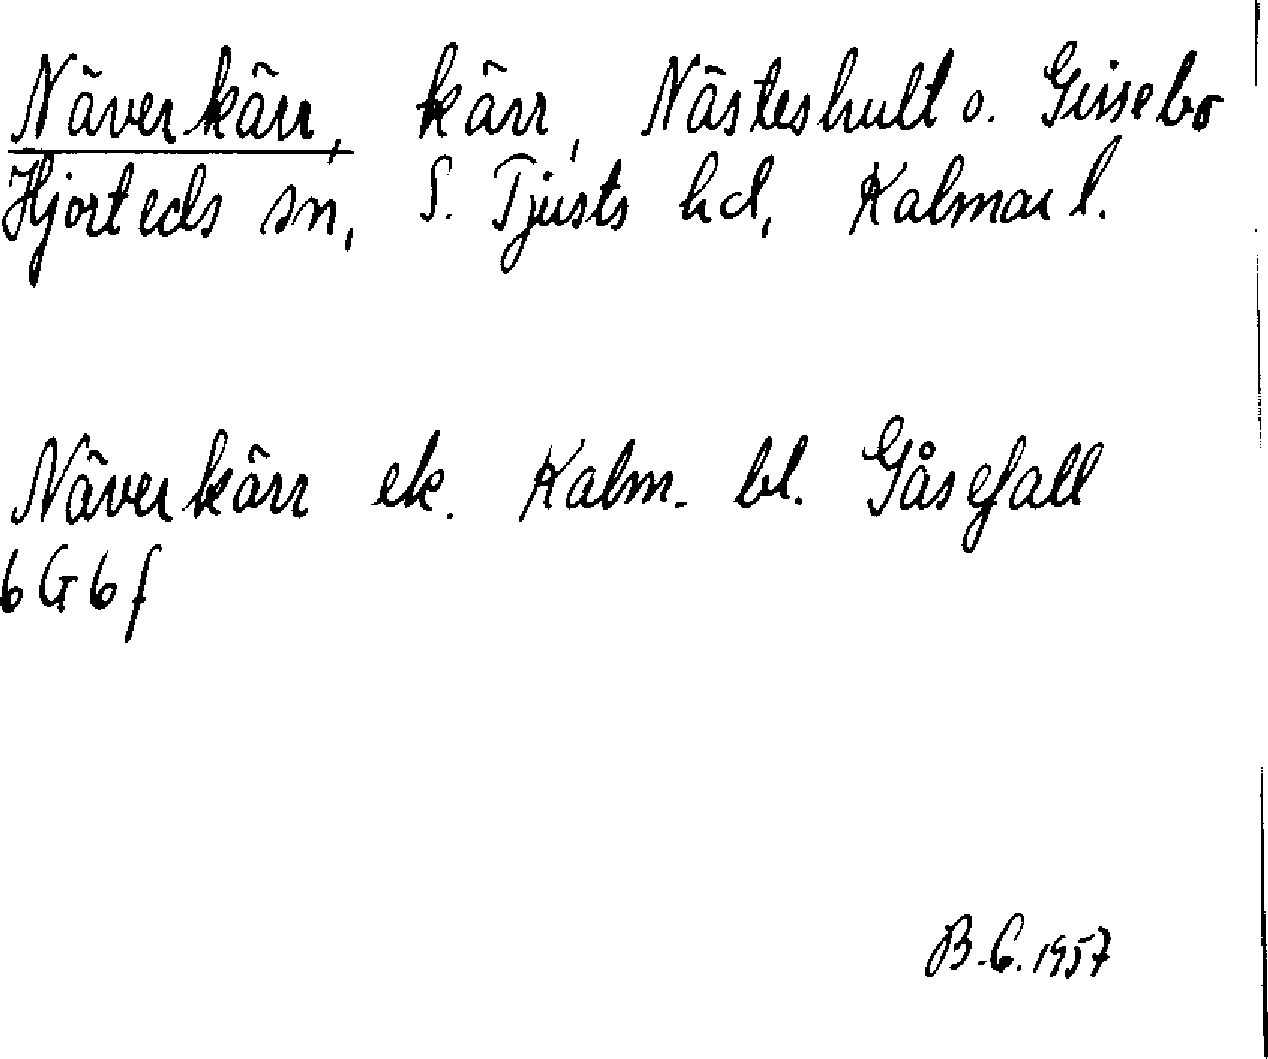 Näverkärr, kärr, Näs​teshult o. Gissebo
Hjorteds sn, S. Tjusts hd, Kalmar l.
Näverkärr ek. Kalm. bl. Gåsefall
6G6f
B.G. 1957